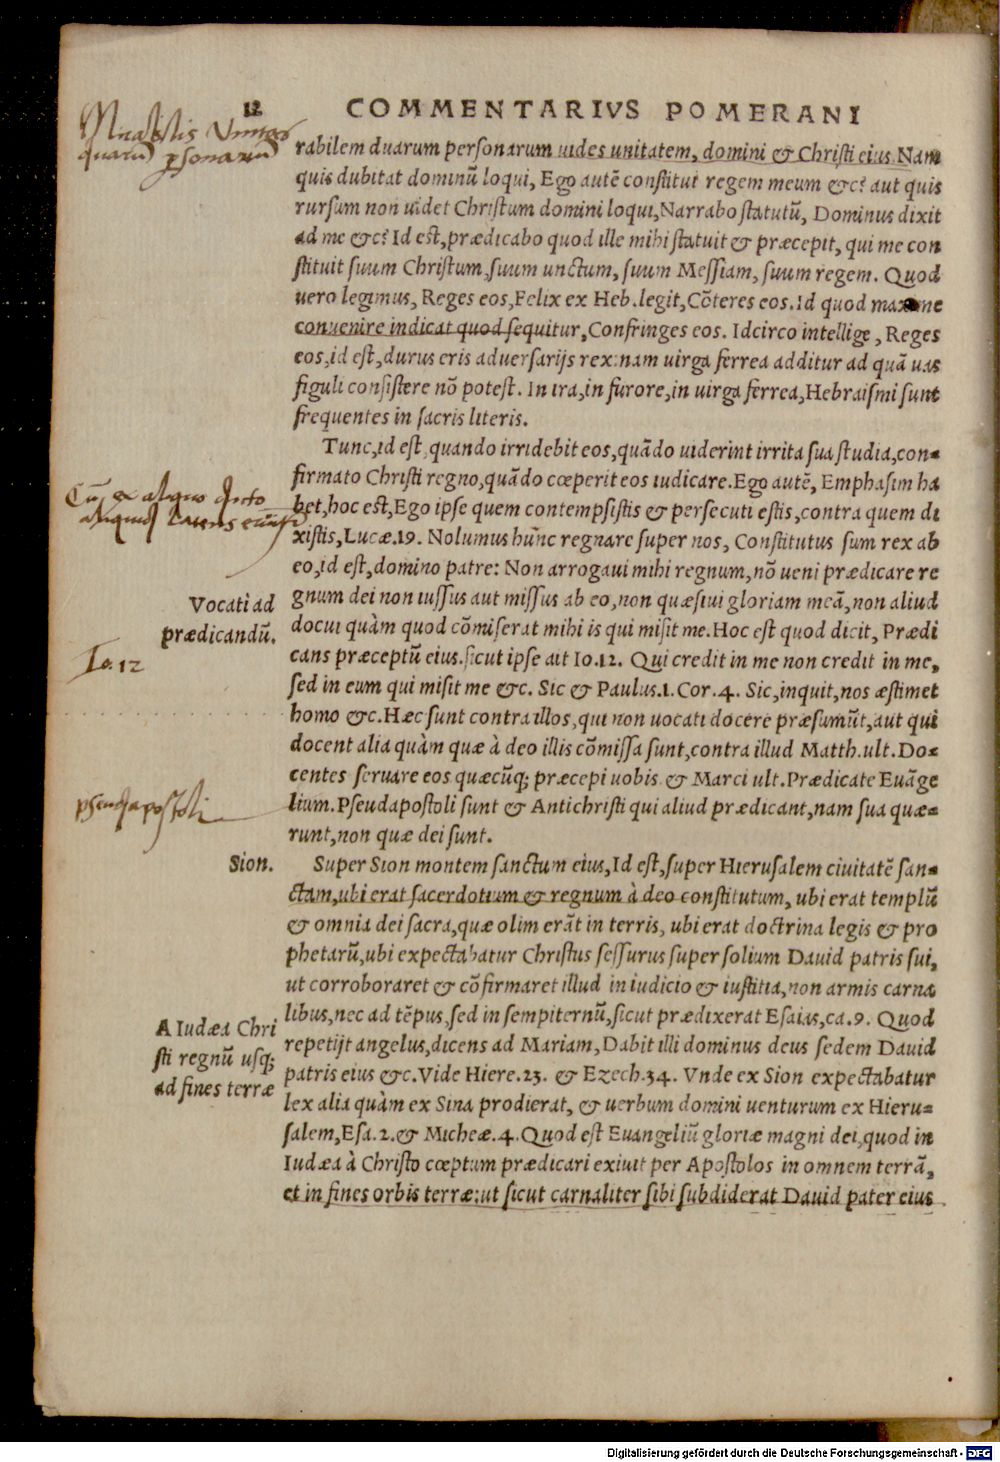 12 COMMENTARIVS POMERANI
Mirabilis
duarum personarum
rabilem duarum personarum uides unitatem, domini & Christi eius. Nam
quis dubitat dominũ loqui, Ego autẽ constitui regem meum &c? aut quis
rursum non uidet Christum domini loqui, Narrabo statutũ, Dominus dixit
ad me &c? Id est, prædicabo quod ille mihi statuit & præcepit, qui me con
stituit suum Christum, suum unctum, suum Messiam, suum regem. Quod
uero legimus, Reges eos, Felix ex Heb. legit, Cõteres eos. Id quod maxime
conuenire indicat quod sequitur, Confringes eos. Idcirco intellige, Reges
eos, id est, durus eris aduersarijs rex: nam uirga ferrea additur ad quã uas
figuli consistere nõ potest. In ira, in furore, in uirga ferrea, Hebraismi sunt
frequentes in sacris literis.
Tunc, id est, quando irridebit eos, quãdo uiderint irrita sua studia, con=
firmato Christi regno, quãdo cœperit eos iudicare. Ego autẽ, Emphasim ha
bet, hoc est, Ego ipse quem contempsistis & persecuti estis, contra quem di
xistis, Lucæ. 19. Nolumus hũnc regnare super nos, Constitutus sum rex ab
eo, id est, domino patre: Non arrogaui mihi regnum, nõ ueni prædicare re
Vocati ad
gnum dei non iussus aut missus ab eo, non quæsiui gloriam meã, non aliud
prædicandũ.
docui quàm quod cõmiserat mihi is qui misit me. Hoc est quod dicit, Prædi
Io. 12
cans præceptũ eius. sicut ipse ait Io. 12. Qui credit in me non credit in me,
sed in eum qui misit me &c. Sic & Paulus. 1. Cor. 4. Sic, inquit, nos æstimet
homo &c. Hæc sunt contra illos, qui non uocati docere præsumũt, aut qui
docent alia quàm quæ à deo illis cõmissa sunt, contra illud Matth. ult. Do=
centes seruare eos quæcũq; præcepi uobis. & Marci ult. Prædicate Euãge
pseudapostoli
lium. Pseudapostoli sunt & Antichristi qui aliud prædicant, nam sua quæ=
runt, non quæ dei sunt.
Sion.
Super Sion montem sanctum eius, Id est, super Hierusalem ciuitatẽ san=
ctam, ubi erat sacerdotium & regnum à deo constitutum, ubi erat templũ
& omnia dei sacra, quæ olim erãt in terris, ubi erat doctrina legis & pro
phetarũ, ubi expectabatur Christus sessurus super solium Dauid patris sui,
ut corroboraret & cõfirmaret illud in iudicio & iustitia, non armis carna
A Iudæa Chri
sti regnũ usq;
ad fines terræ
libus, nec ad tẽpus, sed in sempiternũ, sicut prædixerat Esaias, ca. 9. Quod
repetijt angelus, dicens ad Mariam, Dabit illi dominus deus sedem Dauid
patris eius &c. Vide Hiere. 23. & Ezech. 34. Vnde ex Sion expectabatur
lex alia quàm ex Sina prodierat, & uerbum domini uenturum ex Hieru=
salem, Esa. 2. & Micheæ. 4. Quod est Euangeliũ gloriæ magni dei, quod in
Iudæa à Christo cœptum prædicari exiuit per Apostolos in omnem terrã,
et in fines orbis terræ: ut sicut carnaliter sibi subdiderat Dauid pater eius
Digitalisierung gefördert durch die Deutsche Forschungsgemeinschaft - DFG